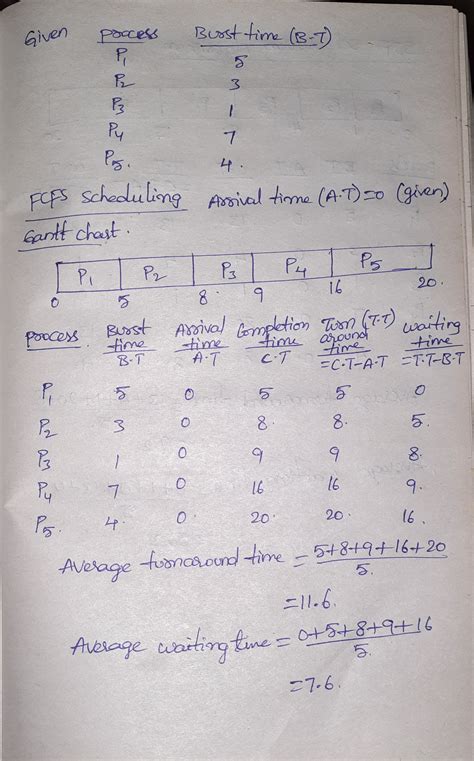 Given process Burst time (B-T)
P1 5
P2 3
P3 1
P4 7
P5. 4.
FCFS Scheduling Arrival time (A.T)=0 (given)
Gantt chart.
P1 P2 P3 P4 P5
0 5 8. 9 16 20.
process Burst time B.T Arrival time A.T Completion time C.T Turn around time (T.T) =C.T-A.T waiting time =T.T-B.T
P1 5 0 5 5 0
P2 3 0 8. 8. 5.
P3 1 0 9 9 8.
P4 7 0 16 16 9.
P5. 4. 0. 20. 20. 16.
Average turnaround time = 5+8+9+16+20
5.
=11.6.
Average waiting time = 0+5+8+9+16
5.
=7.6.